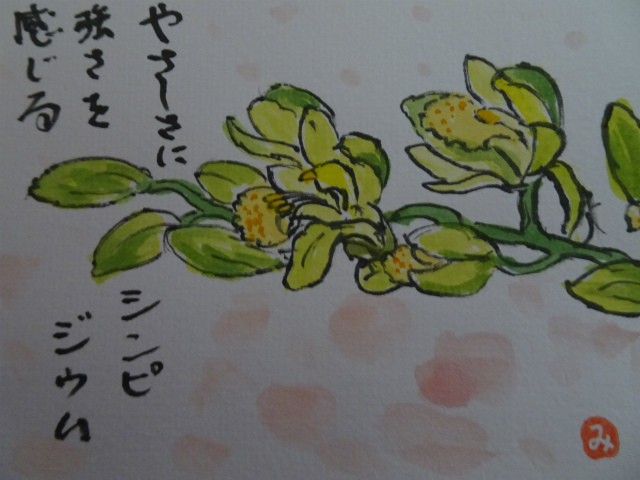 やさしさに
強さを
感じる
シンピ
ジウム
み